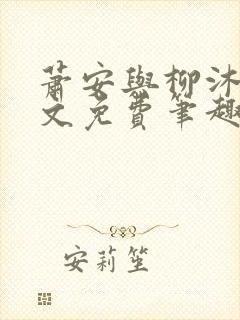 蕭安與柳沐
文免費筆趣
安莉笙